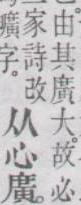 也由其廣大。故必
三家詩改
曠字。
从心廣。